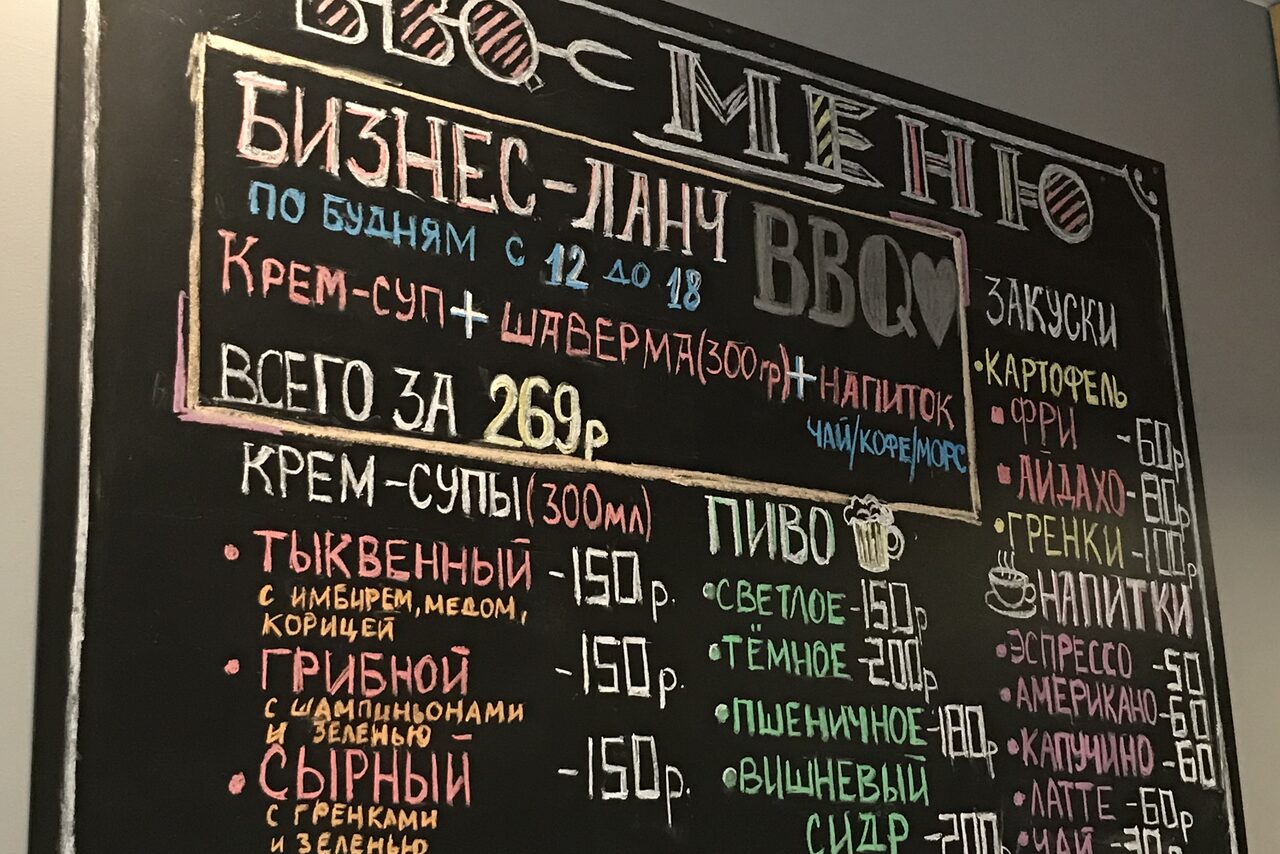 BBQ МЕНЮ
БИЗНЕС-ЛАНЧ
ПО БУДНЯМ С 12 ДО 18
BBQ
КРЕМ-СУП + ШАВЕРМА(300гр) + НАПИТОК
ЧАЙ/КОФЕ/МОРС
ВСЕГО ЗА 269р
КРЕМ-СУПЫ (300мл)
• ТЫКВЕННЫЙ -150р.
С ИМБИРЕМ, МЕДОМ,
КОРИЦЕЙ
• ГРИБНОЙ -150р.
С ШАМПИНЬОНАМИ
И ЗЕЛЕНЬЮ
• СЫРНЫЙ -150р.
С ГРЕНКАМИ
И ЗЕЛЕНЬЮ
ПИВО
• СВЕТЛОЕ -150р
• ТЁМНОЕ -200р
• ПШЕНИЧНОЕ -180р
• ВИШНЕВЫЙ
СИДР -200
ЗАКУСКИ
• КАРТОФЕЛЬ
ФРИ -60р
АЙДАХО -80р
• ГРЕНКИ -100р
НАПИТКИ
• ЭСПРЕССО -50
• АМЕРИКАНО -60
• КАПУЧИНО -60
• ЛАТТЕ -60р
• ЧАЙ -30р